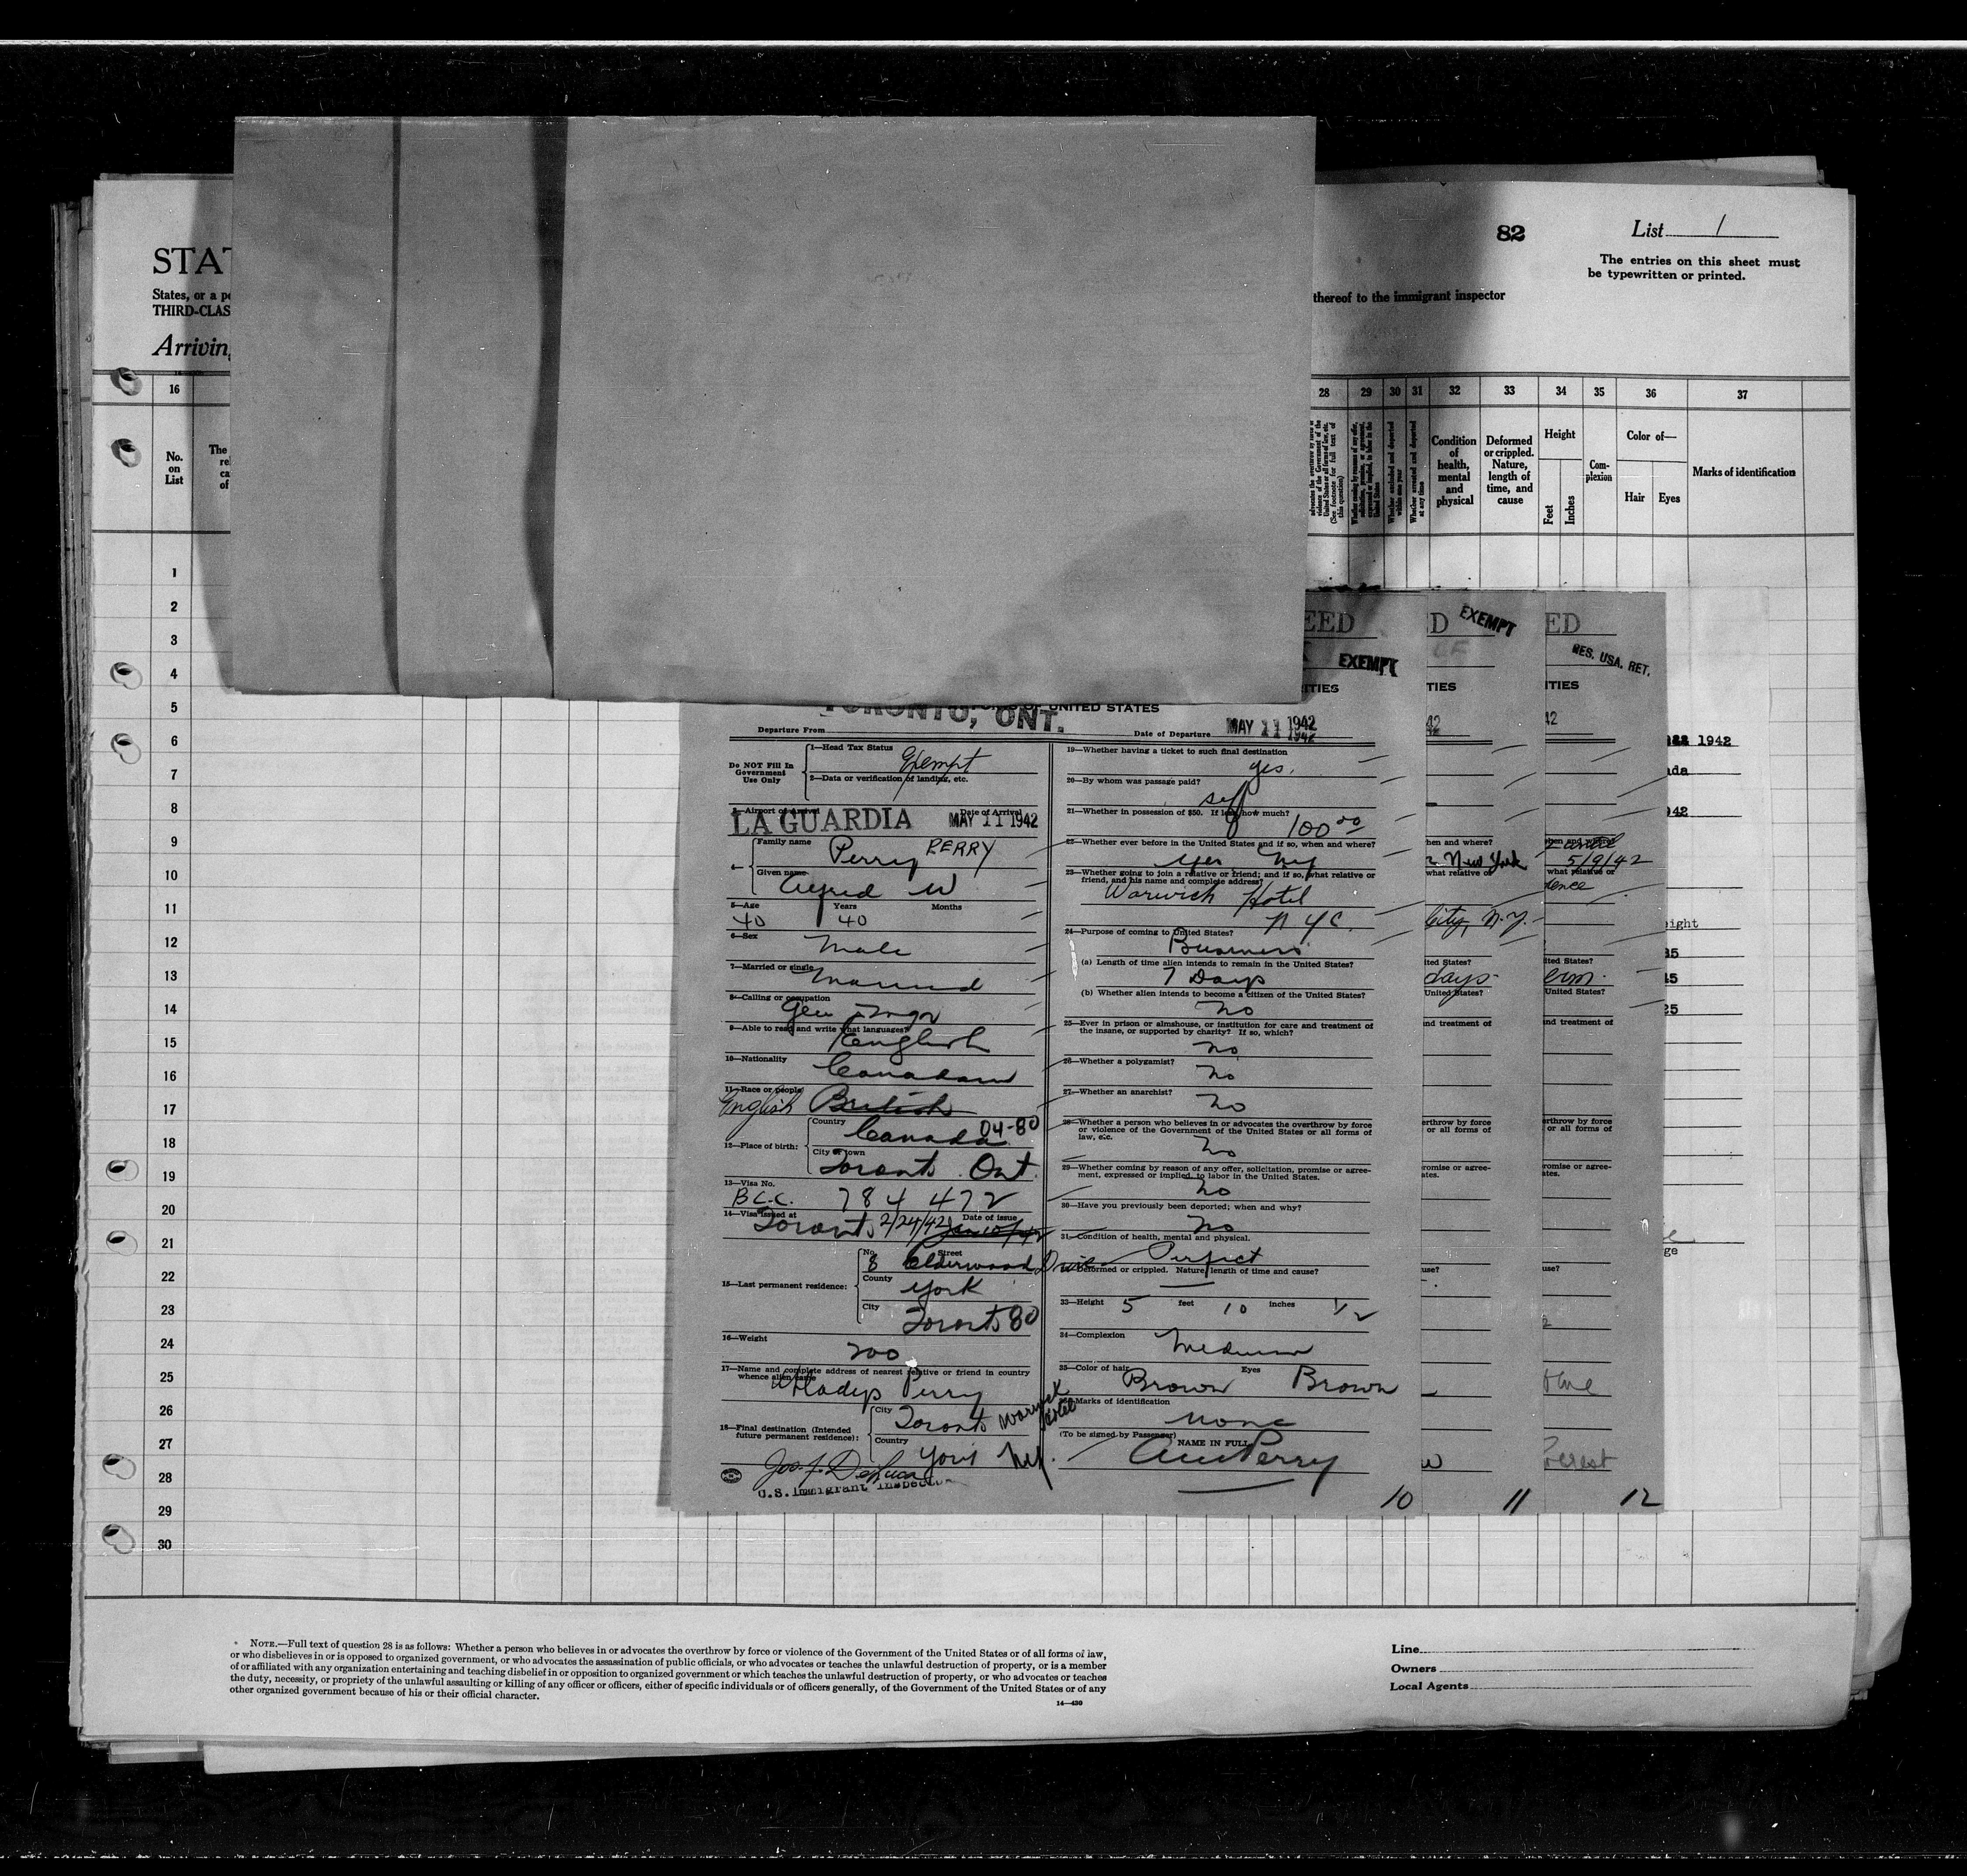 STAT
States, or a pe
THIRD-CLAS
Arriving
82
List 1
The entries on this sheet must
be typewritten or printed.
thereof to the immigrant inspector
16
28 29 30 31 32 33 34 35 36 37
No.
on
List
The
re
ca
of
advocates the overthrow by force or
violence of the Government of the
United States or all forms of law, etc.
(See footnote for full text of
this question)
Whether coming by reason of any offer,
solicitation, promise, or agreement,
expressed or implied, to labor in the
United States
Whether excluded and deported
within one year
Whether arrested and deported
at any time
Condition
of
health,
mental
and
physical
Deformed
or crippled.
Nature,
length of
time, and
cause
Height
Feet
Inches
Com-
plexion
Color of—
Hair Eyes
Marks of identification
1
2
3
4
5
6
7
8
9
10
11
12
13
14
15
16
17
18
19
20
21
22
23
24
25
26
27
28
29
30
EED
EXEMPT
ITIES
UNITED STATES
TORONTO, ONT.
Departure From
Date of Departure MAY 11 1942
1942
Do NOT Fill In
Government
Use Only
1—Head Tax Status Exempt
2—Data or verification of landing, etc.
3—Airport of Arrival Date of Arrival
LA GUARDIA MAY 11 1942
4—
Family name Perry PERRY
Given name Alfred W
5—Age Years Months
40 40
6—Sex Male
7—Married or single Married
8—Calling or occupation
Gen Mgr
9—Able to read and write what languages?
English
10—Nationality Canadian
11—Race or people
English British
12—Place of birth:
Country Canada 04-80
City or town
Toronto Ont
13—Visa No.
B C.C. 784 472
14—Visa issued at Date of issue
Toronto 2/24/42
15—Last permanent residence:
No. Street
8 Elderwood Drive
County York
City Toronto 80
16—Weight
200
17—Name and complete address of nearest relative or friend in country
whence alien came
Gladys Perry
18—Final destination (Intended
future permanent residence):
City Toronto Warwick Hotel
Country York NY.
Jos. J. DeLuca
U.S. Immigrant Inspector
19—Whether having a ticket to such final destination
yes.
20—By whom was passage paid?
self
21—Whether in possession of $50. If less, how much?
100 00
22—Whether ever before in the United States and if so, when and where?
Yes NY
23—Whether going to join a relative or friend; and if so, what relative or
friend, and his name and complete address?
Warwick Hotel
N Y C.
24—Purpose of coming to United States?
Business
(a) Length of time alien intends to remain in the United States?
7 Days
(b) Whether alien intends to become a citizen of the United States?
No
25—Ever in prison or almshouse, or institution for care and treatment of
the insane, or supported by charity? If so, which?
No
26—Whether a polygamist?
No
27—Whether an anarchist?
No
28—Whether a person who believes in or advocates the overthrow by force
or violence of the Government of the United States or all forms of
law, etc.
No
29—Whether coming by reason of any offer, solicitation, promise or agree-
ment, expressed or implied, to labor in the United States.
No
30—Have you previously been deported; when and why?
No
31—Condition of health, mental and physical.
Perfect
32—Deformed or crippled. Nature, length of time and cause?
33—Height 5 feet 10 inches 1/2
34—Complexion
Medium
35—Color of hair Eyes
Brown Brown
36—Marks of identification
None
(To be signed by Passenger) NAME IN FULL
AW Perry
10
ED
EXEMPT
TIES
42
hen and where?
New York
what relative or
City, N.Y.
ited States?
days
United States?
nd treatment of
erthrow by force
or all forms of
romise or agree-
ates.
use?
11
ED
RES. USA. RET.
ITIES
42
5/9/42
what relative or
dence
ited States?
erm.
United States?
nd treatment of
rthrow by force
or all forms of
romise or agree-
ates.
use?
12
1942
ada
942
eight
35
45
25
ge
* NOTE.—Full text of question 28 is as follows: Whether a person who believes in or advocates the overthrow by force or violence of the Government of the United States or of all forms of law,
or who disbelieves in or is opposed to organized government, or who advocates the assassination of public officials, or who advocates or teaches the unlawful destruction of property, or is a member
of or affiliated with any organization entertaining and teaching disbelief in or opposition to organized government or which teaches the unlawful destruction of property, or who advocates or teaches
the duty, necessity, or propriety of the unlawful assaulting or killing of any officer or officers, either of specific individuals or of officers generally, of the Government of the United States or of any
other organized government because of his or their official character.
14—430
Line
Owners
Local Agents